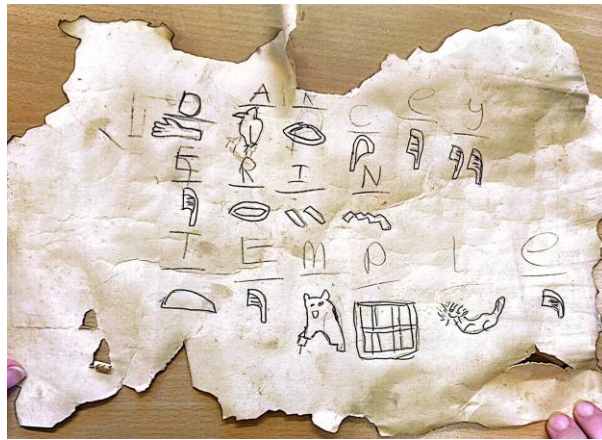 DARCey
ERIN
TEMPLe